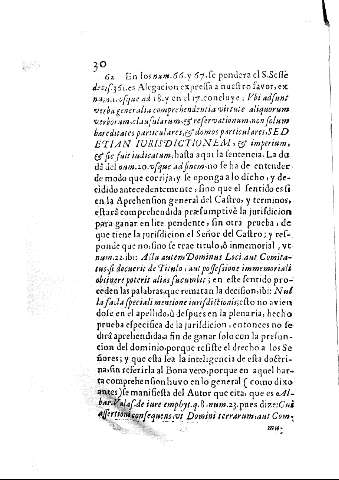 30
62 En los num. 66. y 67. se pondera el S. Sessè
decis. 36. i. es Alegacion expressa a nuestro favor, ex
na. 1. usque ad 18. y en el 17. concluye: Ubi adsunt
verba generalia comprehendentia virtute aliquorum
verborum, clausularum, & reservationum, non solum
hæreditates particulares, & domos particulares, SED
ETIAM IURISDICTIONEM, & imperium,
& sic fuit iudicatum, hasta aqui la sentencia. La du
da del num. 20. usque ad finem no se ha de entender
de modo que corrija, y se oponga a lo dicho, y de-
cidido antecedentemente; sino que el sentido es si
en la Aprehension general del Castro, y terminos,
estarà comprehendida præsumptivè la jurisdicion
para ganar en lite pendente, sin otra prueba, de
que tiene la jurisdicion el Señor del Castro; y res-
ponde que no, sino se trae titulo, ò inmemorial, ut
num. 22. ibi: Alia autem Dominus Loci aut Comita-
tus, si docuerit de Titulo, aut possessione immemoriali
obtinere poterit alias sucumbit; en este sentido pro-
ceden las palabras, que rematan la decision, ibi: Nul
la facta speciali mentione iurisdictionis; esto no avien
dose en el apellido, ò despues en la plenaria, hecho
prueba especifica de la jurisdicion, entonces no se
dirà aprehendida, a fin de ganar solo con la presun-
cion del dominio, porque resiste el drecho a los Se
ñores; y que esta sea la inteligencia de esta doctri
na, sin referirla al Bona vero, porque en aquel bas-
ta comprehension huvo en lo general (como dixo
antes) se manifiesta del Autor que cita, que es Al-
bar. Valas. de iure emphyt. q. 8. num. 23. pues dize: Cui
assertioni consequens, ut Domini terrarum, aut Com-
mu-